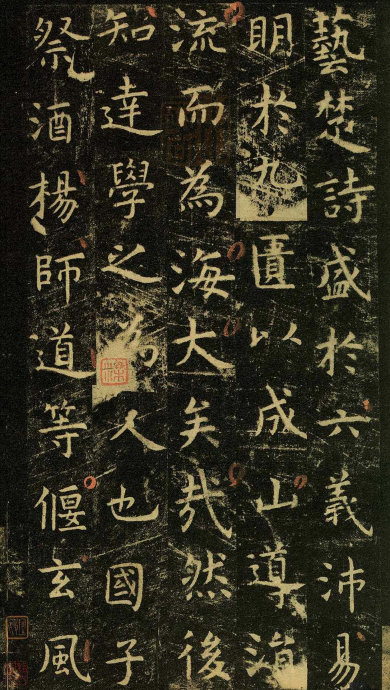 藝楚詩盛於六義沛易
明於九匱以成山導涓
流而為海大矣哉然後
知達學之為人也國子
祭酒楊師道等偃玄風